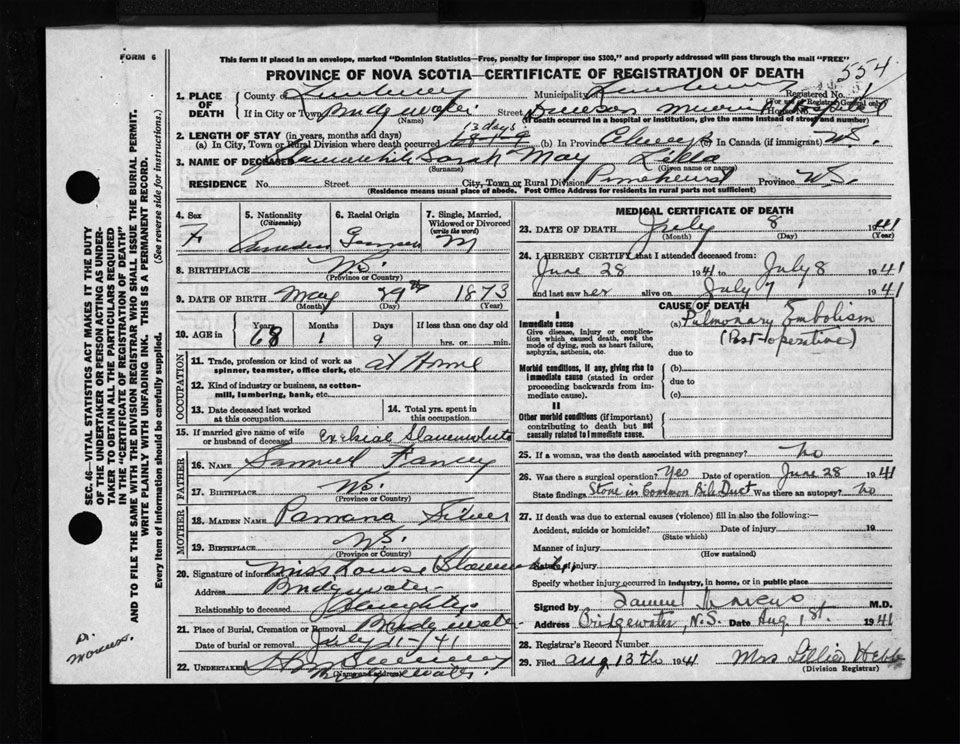 FORM 6
This form if placed in an envelope, marked "Dominion Statistics—Free, penalty for improper use $300," and properly addressed will pass through the mail "FREE"
PROVINCE OF NOVA SCOTIA—CERTIFICATE OF REGISTRATION OF DEATH
554
1. PLACE OF DEATH
County of Lunenburg Municipality Lunenburg Registered No. 1
(For use of Registrar General only)
If in City or Town Bridgewater Street Dawson Memorial Hospital House No.
(Name) (If death occurred in a hospital or institution, give the name instead of street and number)
2. LENGTH OF STAY (in years, months and days) 13 days
(a) In City, Town or Rural Division where death occurred (b) In Province Always (c) In Canada (if immigrant) N.S.
3. NAME OF DECEASED Slauenwhite Sarah May
(Surname) (Given name or names)
RESIDENCE No. Street City, Town or Rural Division Pinehurst Province N.S.
(Residence means usual place of abode. Post Office Address for residents in rural parts not sufficient)
4. Sex F
5. Nationality (Citizenship) Canadian
6. Racial Origin German
7. Single, Married, Widowed or Divorced (write the word) M
8. BIRTHPLACE N.S.
(Province or Country)
9. DATE OF BIRTH May 29th 1873
(Month) (Day) (Year)
10. AGE in Years Months Days If less than one day old
68 1 9 hrs. or min.
OCCUPATION
11. Trade, profession or kind of work as spinner, teamster, office clerk, etc. at Home
12. Kind of industry or business, as cotton-mill, lumbering, bank, etc.
13. Date deceased last worked at this occupation
14. Total yrs. spent in this occupation
15. If married give name of wife or husband of deceased Ezekial Slauenwhite
FATHER
16. NAME Samuel
17. BIRTHPLACE N.S.
(Province or Country)
MOTHER
18. MAIDEN NAME Silver
19. BIRTHPLACE N.S.
(Province or Country)
20. Signature of informant Miss Louise Slauenwhite
Address Bridgewater
Relationship to deceased Daughter
21. Place of Burial, Cremation or Removal Bridgewater
Date of burial or removal July 11-1941
22. UNDERTAKER
Bridgewater
(Name and address)
MEDICAL CERTIFICATE OF DEATH
23. DATE OF DEATH July 8 1941
(Month) (Day) (Year)
24. I HEREBY CERTIFY that I attended deceased from:
June 28 1941 to July 8 1941
and last saw her alive on July 7 1941
CAUSE OF DEATH
I
Immediate cause (a) Pulmonary Embolism
Give disease, injury or complication which caused death, not the mode of dying, such as heart failure, asphyxia, asthenia, etc.
(Post-operative)
due to
Morbid conditions, if any, giving rise to immediate cause (stated in order proceeding backwards from immediate).
(b)
due to
(c)
II
Other morbid conditions (if important) contributing to death but not causally related to immediate cause.
25. If a woman, was the death associated with pregnancy? no
26. Was there a surgical operation? Yes Date of operation June 28 1941
State findings Stone in Common Bile Duct Was there an autopsy? no
27. If death was due to external causes (violence) fill in also the following:—
Accident, suicide or homicide? Date of injury 19
(State which)
Manner of injury
(How sustained)
Nature of injury
Specify whether injury occurred in industry, in home, or in public place
Signed by Samuel Marcus M.D.
Address Bridgewater, N.S. Date Aug. 1st. 1941
28. Registrar's Record Number
29. Filed Aug 13th 1941 Mrs Lillian Hebb
(Division Registrar)
SEC. 46—VITAL STATISTICS ACT MAKES IT THE DUTY OF THE UNDERTAKER OR PERSON ACTING AS UNDERTAKER TO OBTAIN ALL THE PARTICULARS REQUIRED IN THE "CERTIFICATE OF REGISTRATION OF DEATH"
AND TO FILE THE SAME WITH THE DIVISION REGISTRAR WHO SHALL ISSUE THE BURIAL PERMIT.
WRITE PLAINLY WITH UNFADING INK. THIS IS A PERMANENT RECORD.
Every item of information should be carefully supplied. (See reverse side for instructions.)
Dr. Marcus.